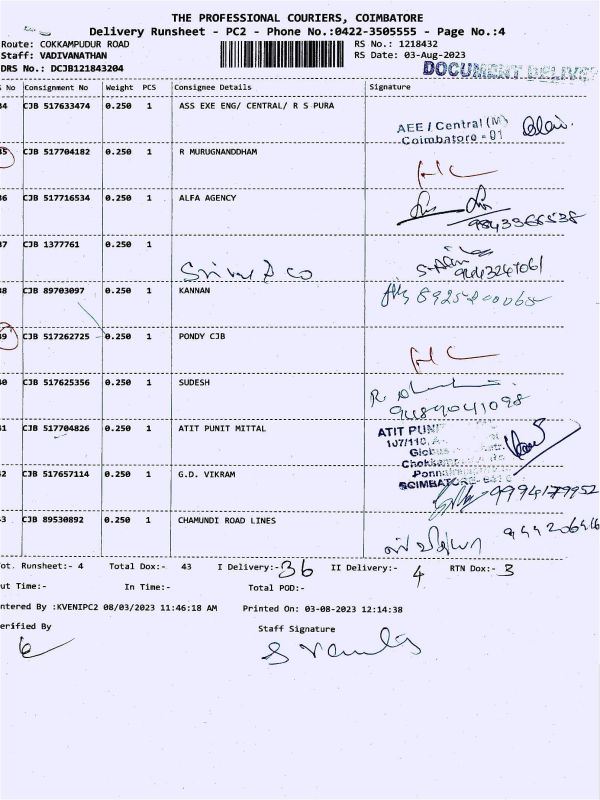 THE PROFESSIONAL COURIERS, COIMBATORE
Delivery Runsheet - PC2 - Phone No.:0422-3505555 - Page No.:4
Route: COKKAMPUDUR ROAD RS No.: 1218432
Staff: VADIVANATHAN RS Date: 03-Aug-2023
DRS No.: DCJB121843204 DOCUMENT DELIVE
No Consignment No Weight PCS Consignee Details Signature
34 CJB 517633474 0.250 1 ASS EXE ENG/ CENTRAL/ R S PURA
AEE / Central (M)
Coimbatore - 01
35 CJB 517704182 0.250 1 R MURUGNANDDHAM
36 CJB 517716534 0.250 1 ALFA AGENCY
9843366538
37 CJB 1377761 0.250 1
38 CJB 89703097 0.250 1 KANNAN
39 CJB 517262725 0.250 1 PONDY CJB
40 CJB 517625356 0.250 1 SUDESH
41 CJB 517704826 0.250 1 ATIT PUNIT MITTAL
ATIT PUN
107/110, A
42 CJB 517657114 0.250 1 G.D. VIKRAM
9994179952
43 CJB 89530892 0.250 1 CHAMUNDI ROAD LINES
ot. Runsheet:- 4 Total Dox:- 43 I Delivery:- 36 II Delivery:- 4 RTN Dox:- 3
ut Time:- In Time:- Total POD:-
ntered By :KVENIPC2 08/03/2023 11:46:18 AM Printed On: 03-08-2023 12:14:38
erified By Staff Signature